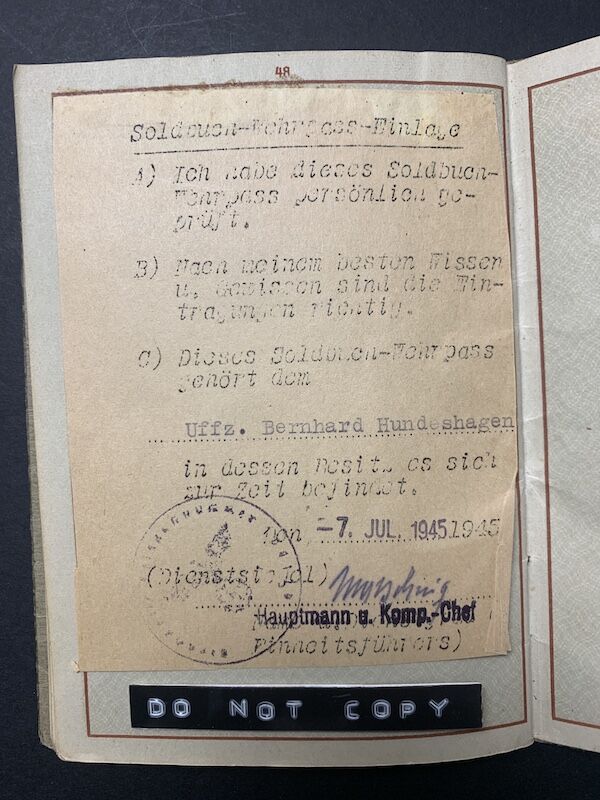 48
Soldbuch-Wehrpass-Einlage
A) Ich habe dieses Soldbuch-
Wehrpass persönlich ge-
prüft.
B) Nach meinem besten Wissen
u. Gewissen sind die Ein-
tragungen richtig.
C) Dieses Soldbuch-Wehrpass
gehört dem
Uffz. Bernhard Hundeshagen
in dessen Besitz es sich
zur Zeit befindet.
den -7. JUL. 1945 1945
(Dienststempel)
Hauptmann u. Komp.-Chef
Einheitsführers)
DO NOT COPY